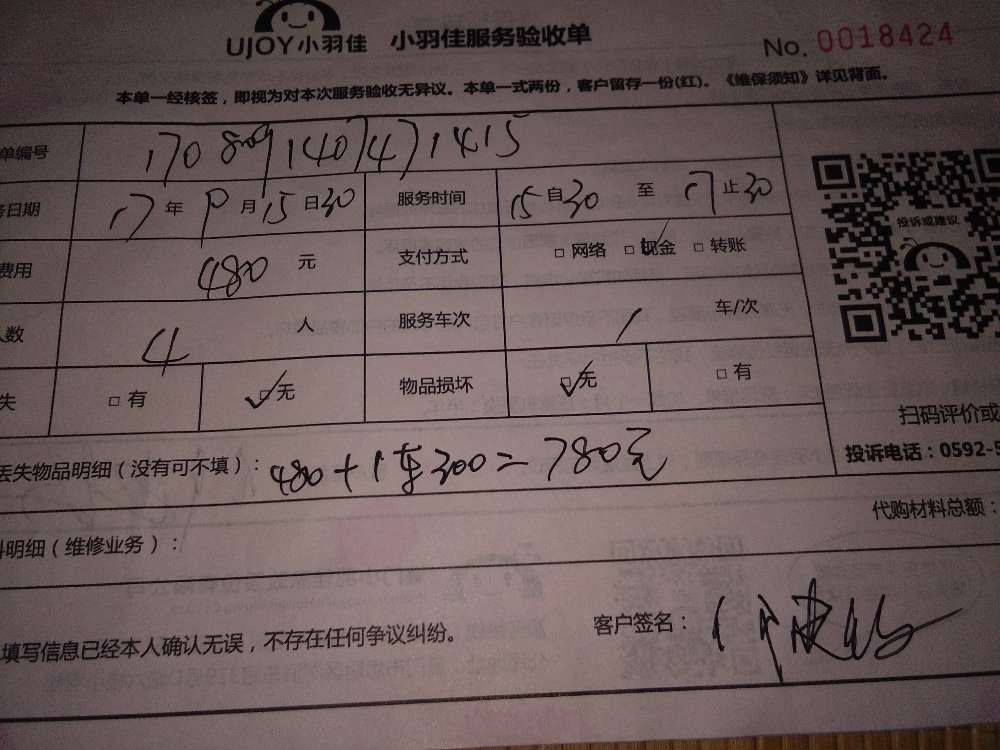 UJOY小羽佳 小羽佳服务验收单 No. 0018424
本单一经核签，即视为对本次服务验收无异议。本单一式两份，客户留存一份(红)。《维保须知》详见背面。
单编号 1708091407471415
务日期 17年 月15日30 服务时间 15自30至17止30
投诉或建议
费用 480元 支付方式 □网络 □现金 □转账
人数 4人 服务车次 1车/次
失 □有 □无 物品损坏 □无 □有
扫码评价或
丢失物品明细（没有可不填）：480+1车300=780元
投诉电话：0592-5
代购材料总额：
料明细（维修业务）：
填写信息已经本人确认无误，不存在任何争议纠纷。
客户签名：